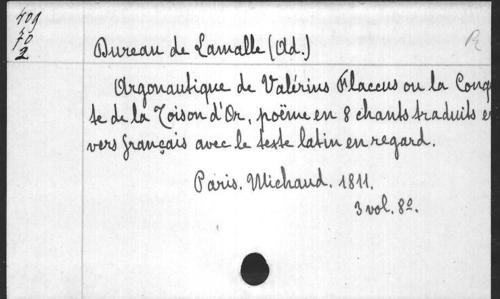 409
70
2
Bureau de Lamalle (Ad.)
Argonautique de Valérius Flaccus ou la Conqu
te de la Toison d'Or, poëme en 8 chants traduits en
vers français avec le texte latin en regard.
Paris. Michaud. 1811.
3 vol. 8º.